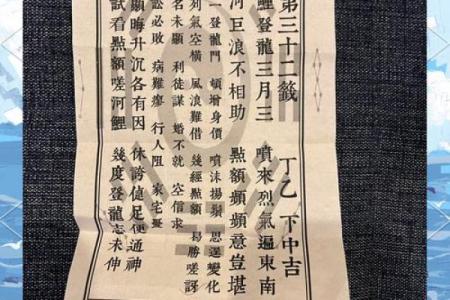 第三十二籤 丁乙 下中吉
鯉登龍三月三 噴來烈氣遍東南
河巨浪不相助 點額頻頻意豈堪
一登龍門 頓增身價 噴沫揚鬚 思逞變化
烈氣空橫 風浪難借 幾經點額 曷勝嗟訝
名未顯 利徒謀 婚不就 空信求
訟必敗 病難瘳 行人阻 家宅憂
顯晦升沉各有因 休誇値足便通神
試看點額嗟河鯉 幾度登龍志未伸